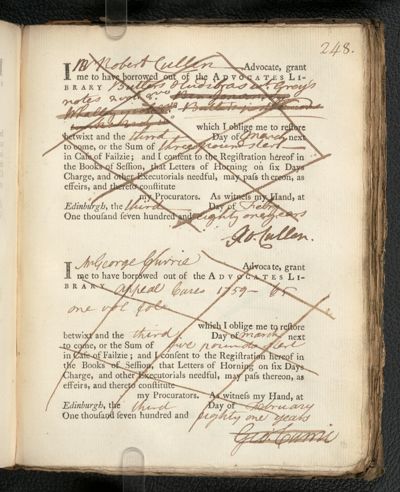 248.
I Mr Robert Cullen Advocate, grant
me to have borrowed out of the ADVOCATES LI-
BRARY Butlers Hudibras wt Grays
notes
which I oblige me to restore
betwixt and the third Day of March next
to come, or the Sum of three pounds sterl
in Case of Failzie; and I consent to the Registration hereof in
the Books of Session, that Letters of Horning on six Days
Charge, and other Executorials needful, may pass thereon, as
effeirs, and thereto constitute
my Procurators. As witness my Hand, at
Edinburgh, the third Day of Febry
One thousand seven hundred and eighty one years
Ro. Cullen.
I Mr George Currie Advocate, grant
me to have borrowed out of the ADVOCATES LI-
BRARY Appeal Cases 1759–
one vol folo
which I oblige me to restore
betwixt and the third Day of March next
to come, or the Sum of five pounds sterl
in Case of Failzie; and I consent to the Registration hereof in
the Books of Session, that Letters of Horning on six Days
Charge, and other Executorials needful, may pass thereon, as
effeirs, and thereto constitute
my Procurators. As witness my Hand, at
Edinburgh, the third Day of February
One thousand seven hundred and eighty one years
Geo. Currie